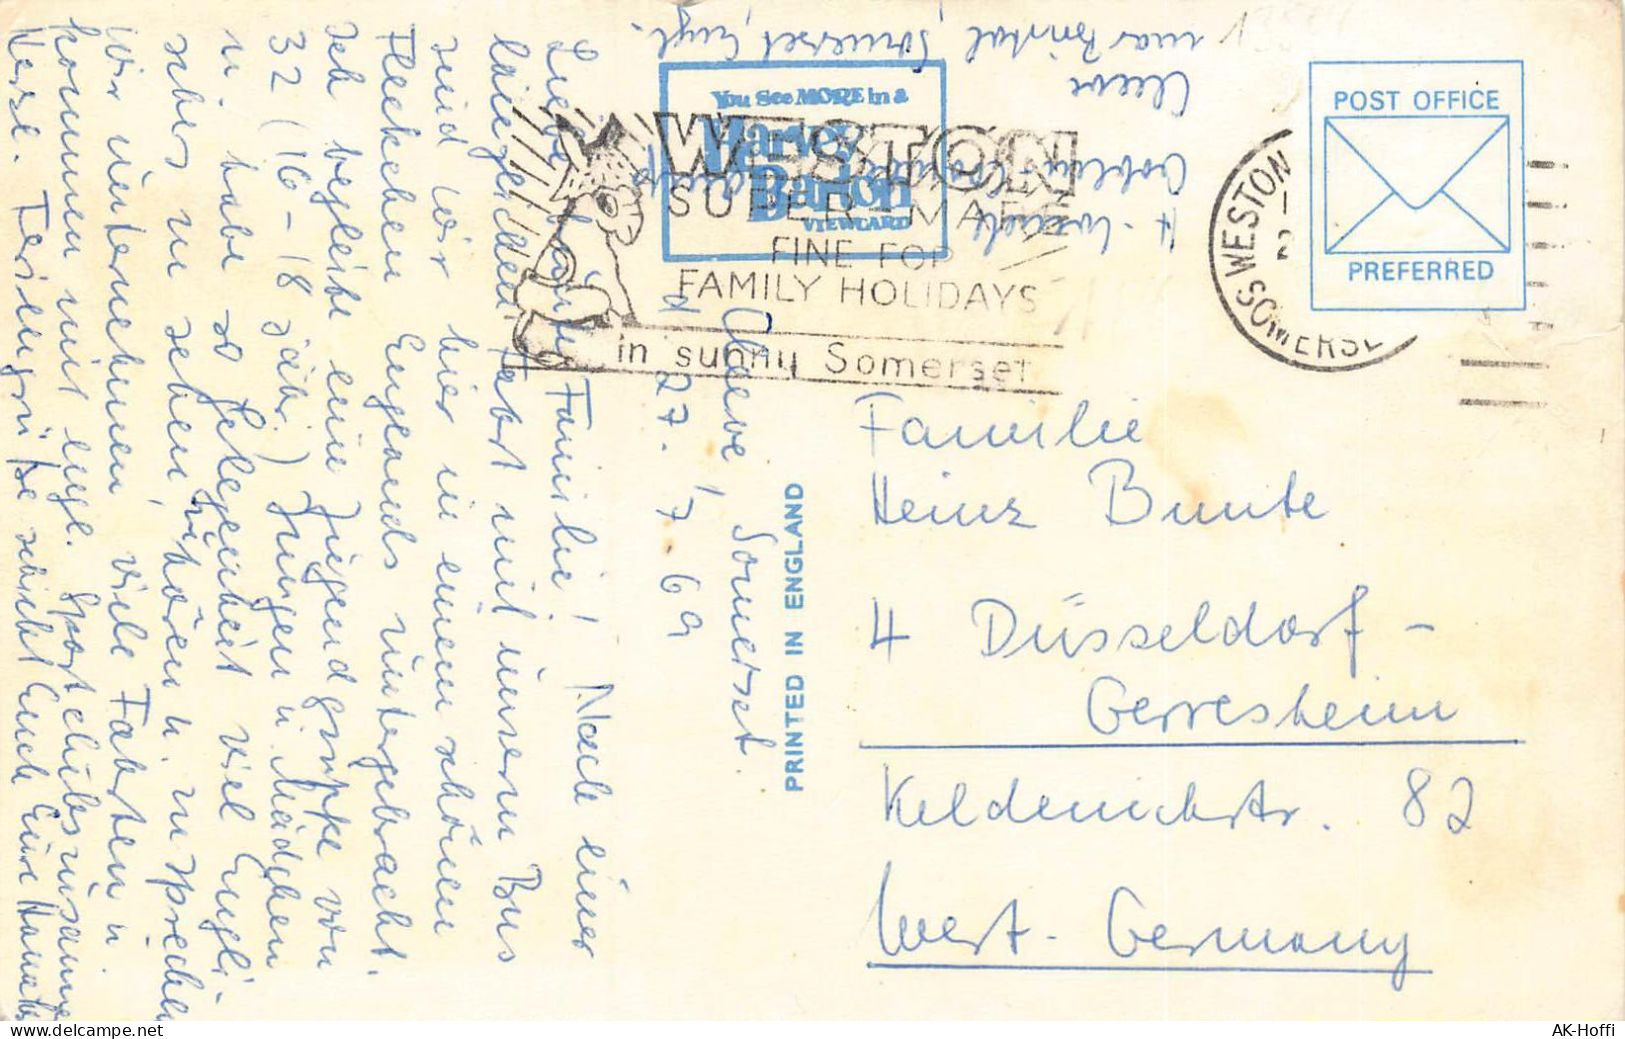 Cleeve, Somerset.
d 27.7.69
Liebe Familie! Nach einer
langen Fahrt mit unserm Bus
sind wir hier in einem schönen
Fleckchen Englands untergebracht.
Ich begleite eine Jugendgruppe von
32 (16-18 jähr.) Jungen u. Mädchen
u. habe so Gelegenheit viel Engli-
sches zu sehen, hören u. zu sprechen
Wir unternehmen viele Fahrten u.
kommen mit engl. Sportclubs zusammen
Feriengrüße schickt Euch Eure
Cleeve
near Bristol Somerset Engl.
You See MORE in a
Harvey
Barton
VIEWCARD
WESTON
SUPER-MARE
FINE FOR
FAMILY HOLIDAYS
in sunny Somerset
WESTON
SOMERSE
POST OFFICE
PREFERRED
PRINTED IN ENGLAND
Familie
Heinz Bunte
4 Düsseldorf -
Gerresheim
Keldenichstr. 82
West-Germany
AK-Hoffi